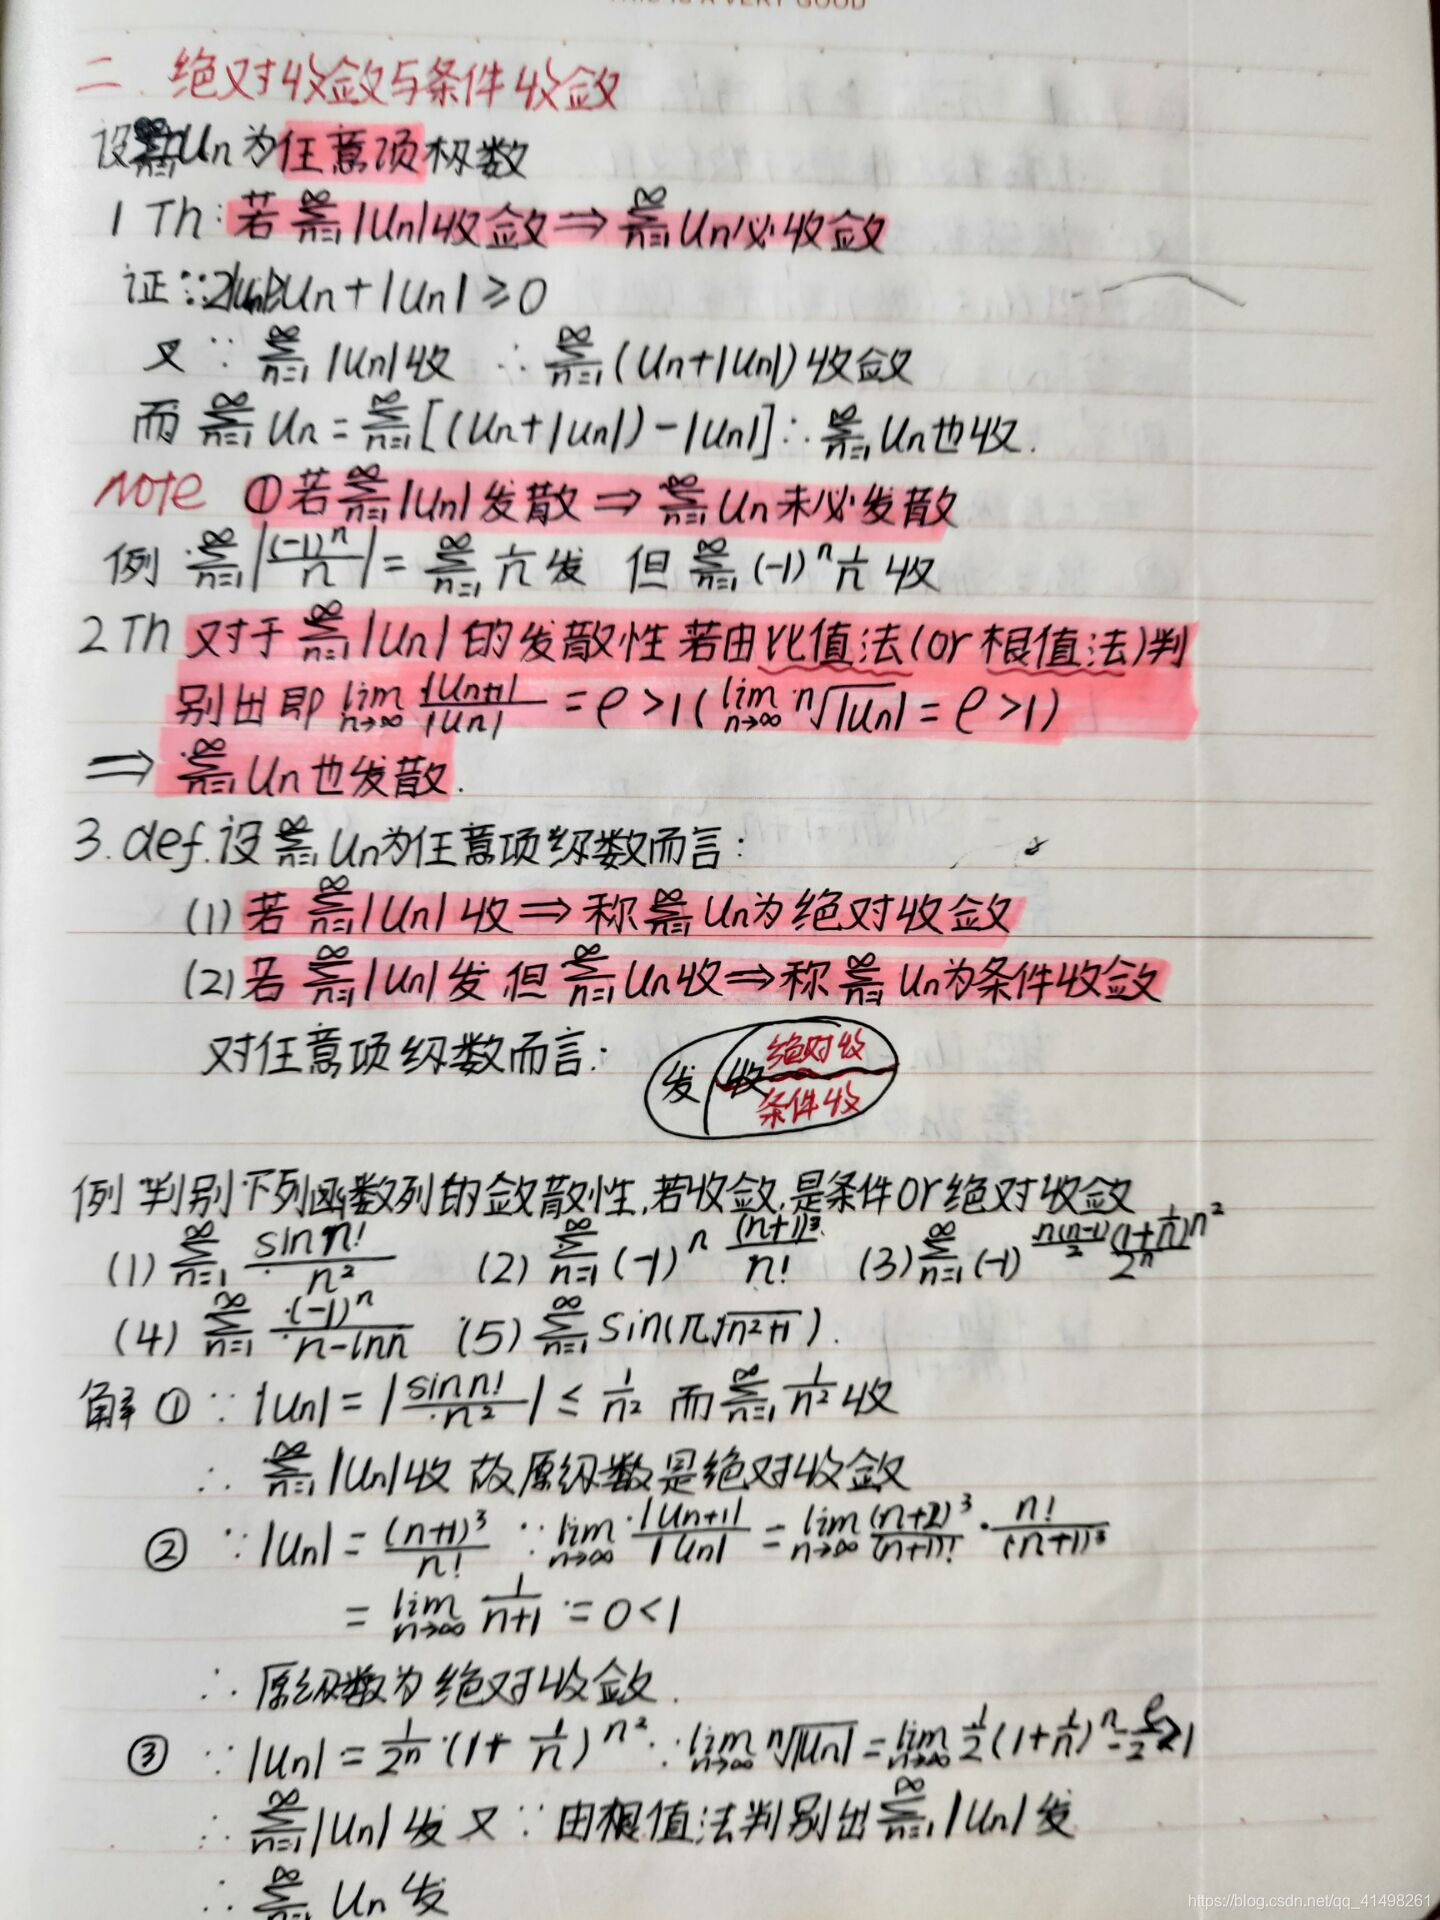 THIS IS A VERY GOOD
二. 绝对收敛与条件收敛
设 Un为任意项极数
1 Th: 若∑_{n=1}^∞|Un|收敛⇒∑_{n=1}^∞Un必收敛
证∵2|Un|≥Un+|Un|≥0
又∵∑_{n=1}^∞|Un|收 ∴∑_{n=1}^∞(Un+|Un|)收敛
而∑_{n=1}^∞Un=∑_{n=1}^∞[(Un+|Un|)-|Un|]∴∑_{n=1}^∞Un也收.
Note ①若∑_{n=1}^∞|Un|发散⇒∑_{n=1}^∞Un未必发散
例 ∑_{n=1}^∞|(-1)^n/n|=∑_{n=1}^∞1/n发 但∑_{n=1}^∞(-1)^n 1/n 收
2 Th 对于∑_{n=1}^∞|Un|的发散性若由比值法(or根值法)判
别出即 lim_{n→∞}|Un+1|/|Un|=ρ>1(lim_{n→∞} n√|Un|=ρ>1)
⇒∑_{n=1}^∞Un也发散.
3. def.设∑_{n=1}^∞Un为任意项级数而言:
(1)若∑_{n=1}^∞|Un|收⇒称∑_{n=1}^∞Un为绝对收敛
(2)若∑_{n=1}^∞|Un|发但∑_{n=1}^∞Un收⇒称∑_{n=1}^∞Un为条件收敛
对任意项级数而言:
发 收 绝对收
条件收
例 判别下列函数列的敛散性,若收敛,是条件or绝对收敛
(1)∑_{n=1}^∞ sin n!/n² (2)∑_{n=1}^∞(-1)^n (n+1)³/n! (3)∑_{n=1}^∞(-1)^{n(n-1)/2} (1+1/n)^{n²}/2^n
(4)∑_{n=1}^∞ (-1)^n/(n-lnn) (5)∑_{n=1}^∞ sin(π√(n²+1)).
解①∵|Un|=|sin n!/n²|≤1/n² 而∑_{n=1}^∞1/n²收
∴∑_{n=1}^∞|Un|收 故原级数是绝对收敛
②∵|Un|=(n+1)³/n! ∵lim_{n→∞}|Un+1|/|Un|=lim_{n→∞}(n+2)³/(n+1)!·n!/(n+1)³
=lim_{n→∞}1/(n+1)=0<1
∴原级数为绝对收敛.
③∵|Un|=1/2^n·(1+1/n)^{n²}∵lim_{n→∞} n√|Un|=lim_{n→∞}1/2(1+1/n)^n=e/2>1
∴∑_{n=1}^∞|Un|发 又∵由根值法判别出∑_{n=1}^∞|Un|发
∴∑_{n=1}^∞Un发
https://blog.csdn.net/qq_41498261